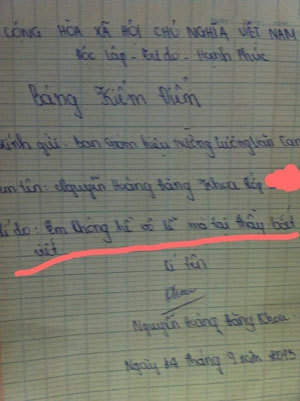 CỘNG HÒA XÃ HỘI CHỦ NGHĨA VIỆT NAM
Độc Lập - Tự do - Hạnh Phúc
Bảng Kiểm Điểm
kính gửi: ban Giám hiệu trường Lương Văn Can
em tên: Nguyễn Hoàng Đăng Khoa lớp
Lí do: Em không hề vô lễ mà tại thầy bắt
viết
kí tên
Khoa
Nguyễn Hoàng Đăng Khoa
Ngày 24 tháng 9 năm 2013